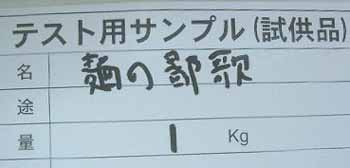 テスト用サンプル(試供品)
名 麺の鄙歌
途
量 1 Kg